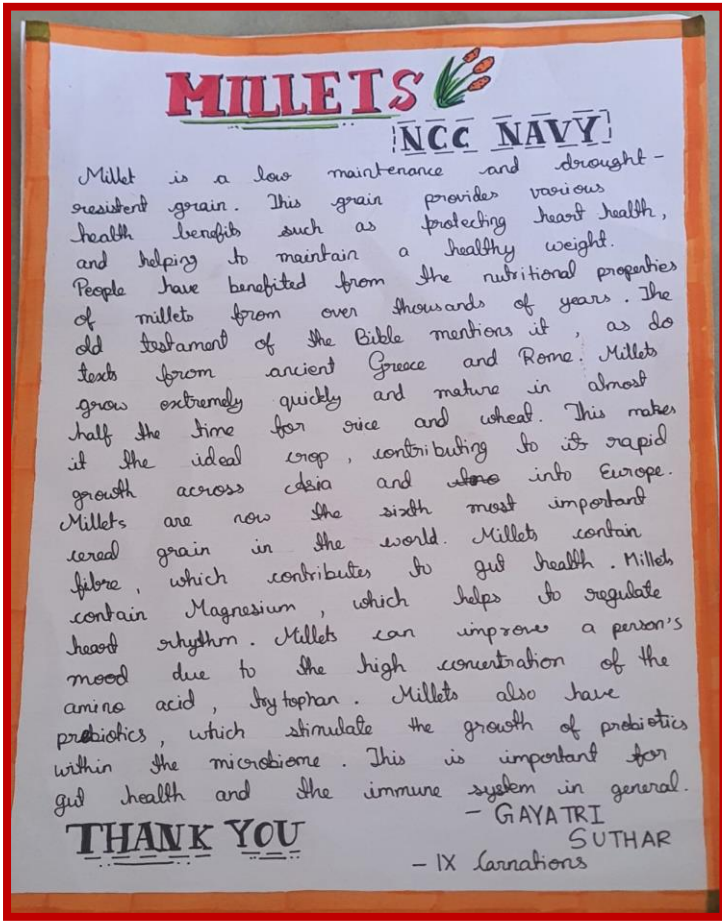 MILLETS
NCC NAVY
Millet is a low maintenance and drought-
resistent grain. This grain provides various
health benefits such as protecting heart health,
and helping to maintain a healthy weight.
People have benefited from the nutritional properties
of millets from over thousands of years. The
old testament of the Bible mentions it, as do
texts from ancient Greece and Rome. Millets
grow extremely quickly and mature in almost
half the time for rice and wheat. This makes
it the ideal crop, contributing to its rapid
growth across Asia and into Europe.
Millets are now the sixth most important
cereal grain in the world. Millets contain
fibre, which contributes to gut health. Millets
contain Magnesium, which helps to regulate
heart rhythm. Millets can improve a person's
mood due to the high concentration of the
amino acid, trytophan. Millets also have
prebiotics, which stimulate the growth of probiotics
within the microbiome. This is important for
gut health and the immune system in general.
- GAYATRI
SUTHAR
THANK YOU
- IX Carnations